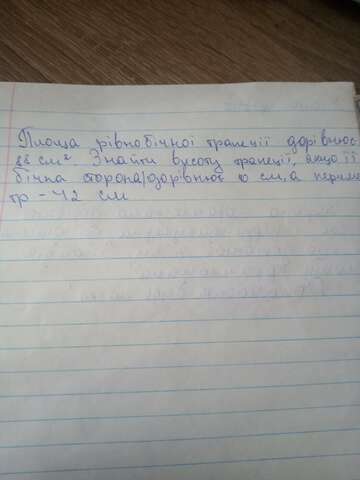 Площа рівнобічної трапеції дорівнює
88 см². Знайти висоту трапеції, якщо її
бічна сторона дорівнює 10 см, а периме
тр - 42 см